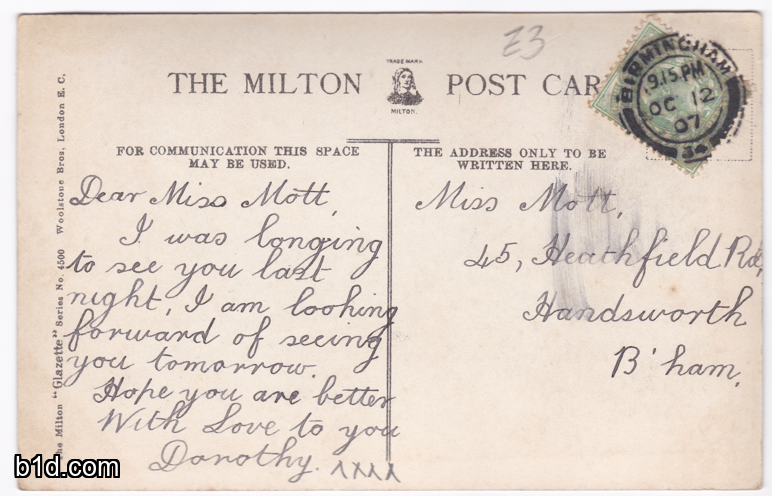 £3
TRADE MARK
THE MILTON POST CAR
MILTON.
BIRMINGHAM
9.15 PM
OC 12
07
34
FOR COMMUNICATION THIS SPACE
MAY BE USED.
THE ADDRESS ONLY TO BE
WRITTEN HERE.
Dear Miss Mott,
I was longing
to see you last
night, I am looking
forward of seeing
you tomorrow.
Hope you are better
With Love to you
Dorothy. xxxx
Miss Mott,
45, Heathfield Rd,
Handsworth
B'ham.
he Milton "Glazette" Series No. 4500 Woolstone Bros, London E.C.
b1d.com